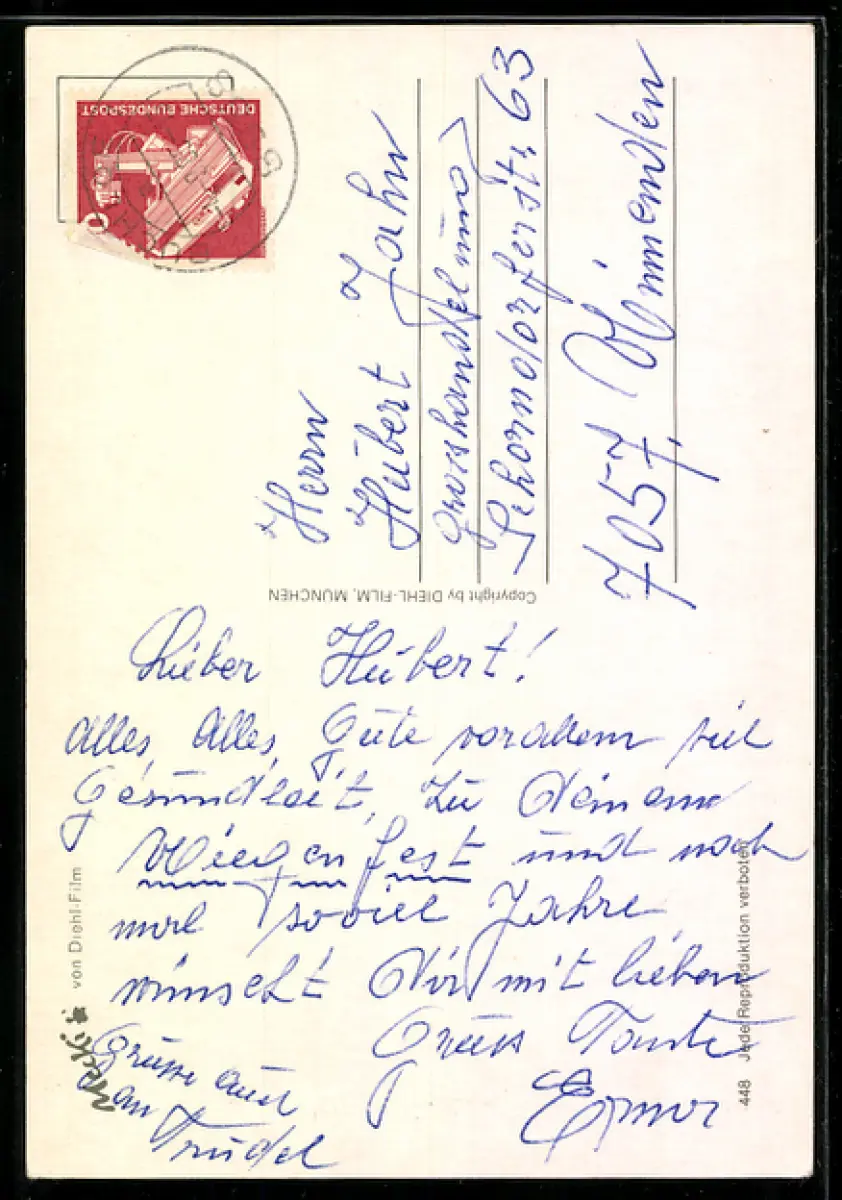 DEUTSCHE BUNDESPOST
Herrn
Hubert Jahn
Grosshandelung
Schorndorferstr. 63
7057 Winnenden
Copyright by DIEHL-FILM, MÜNCHEN
Lieber Hubert!
Alles, Alles, Gute vorallem viel
Gesundheit, zu Deinem
Wiegenfest und noch
mal soviel Jahre
wünscht Dir mit lieben
Gruss Tante
Erna
Grüsse auch
an
Trudel
Mecki von Diehl-Film
448 Jede Reproduktion verboten